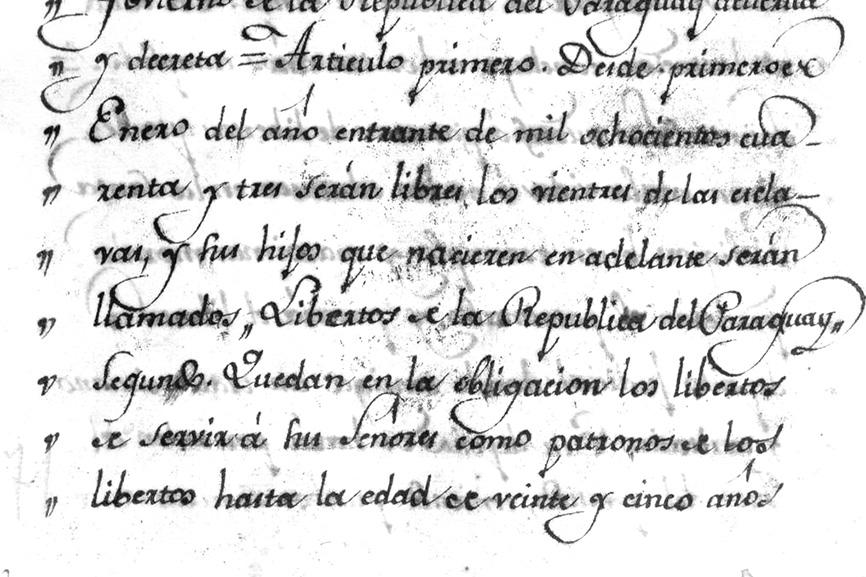 „ Govierno de la Republica del Paraguay acuerda
„ y decreta = Articulo primero. Desde primero de
„ Enero del año entrante de mil ochocientos cua-
„ renta y tres serán libres los vientres de las escla-
„ vas, y sus hijos que nacieren en adelante serán
„ llamados „ Libertos de la Republica del Paraguay „
„ segundo. Quedan en la obligacion los libertos
„ de servir á sus Señores como patronos de los
„ libertos hasta la edad de veinte y cinco años